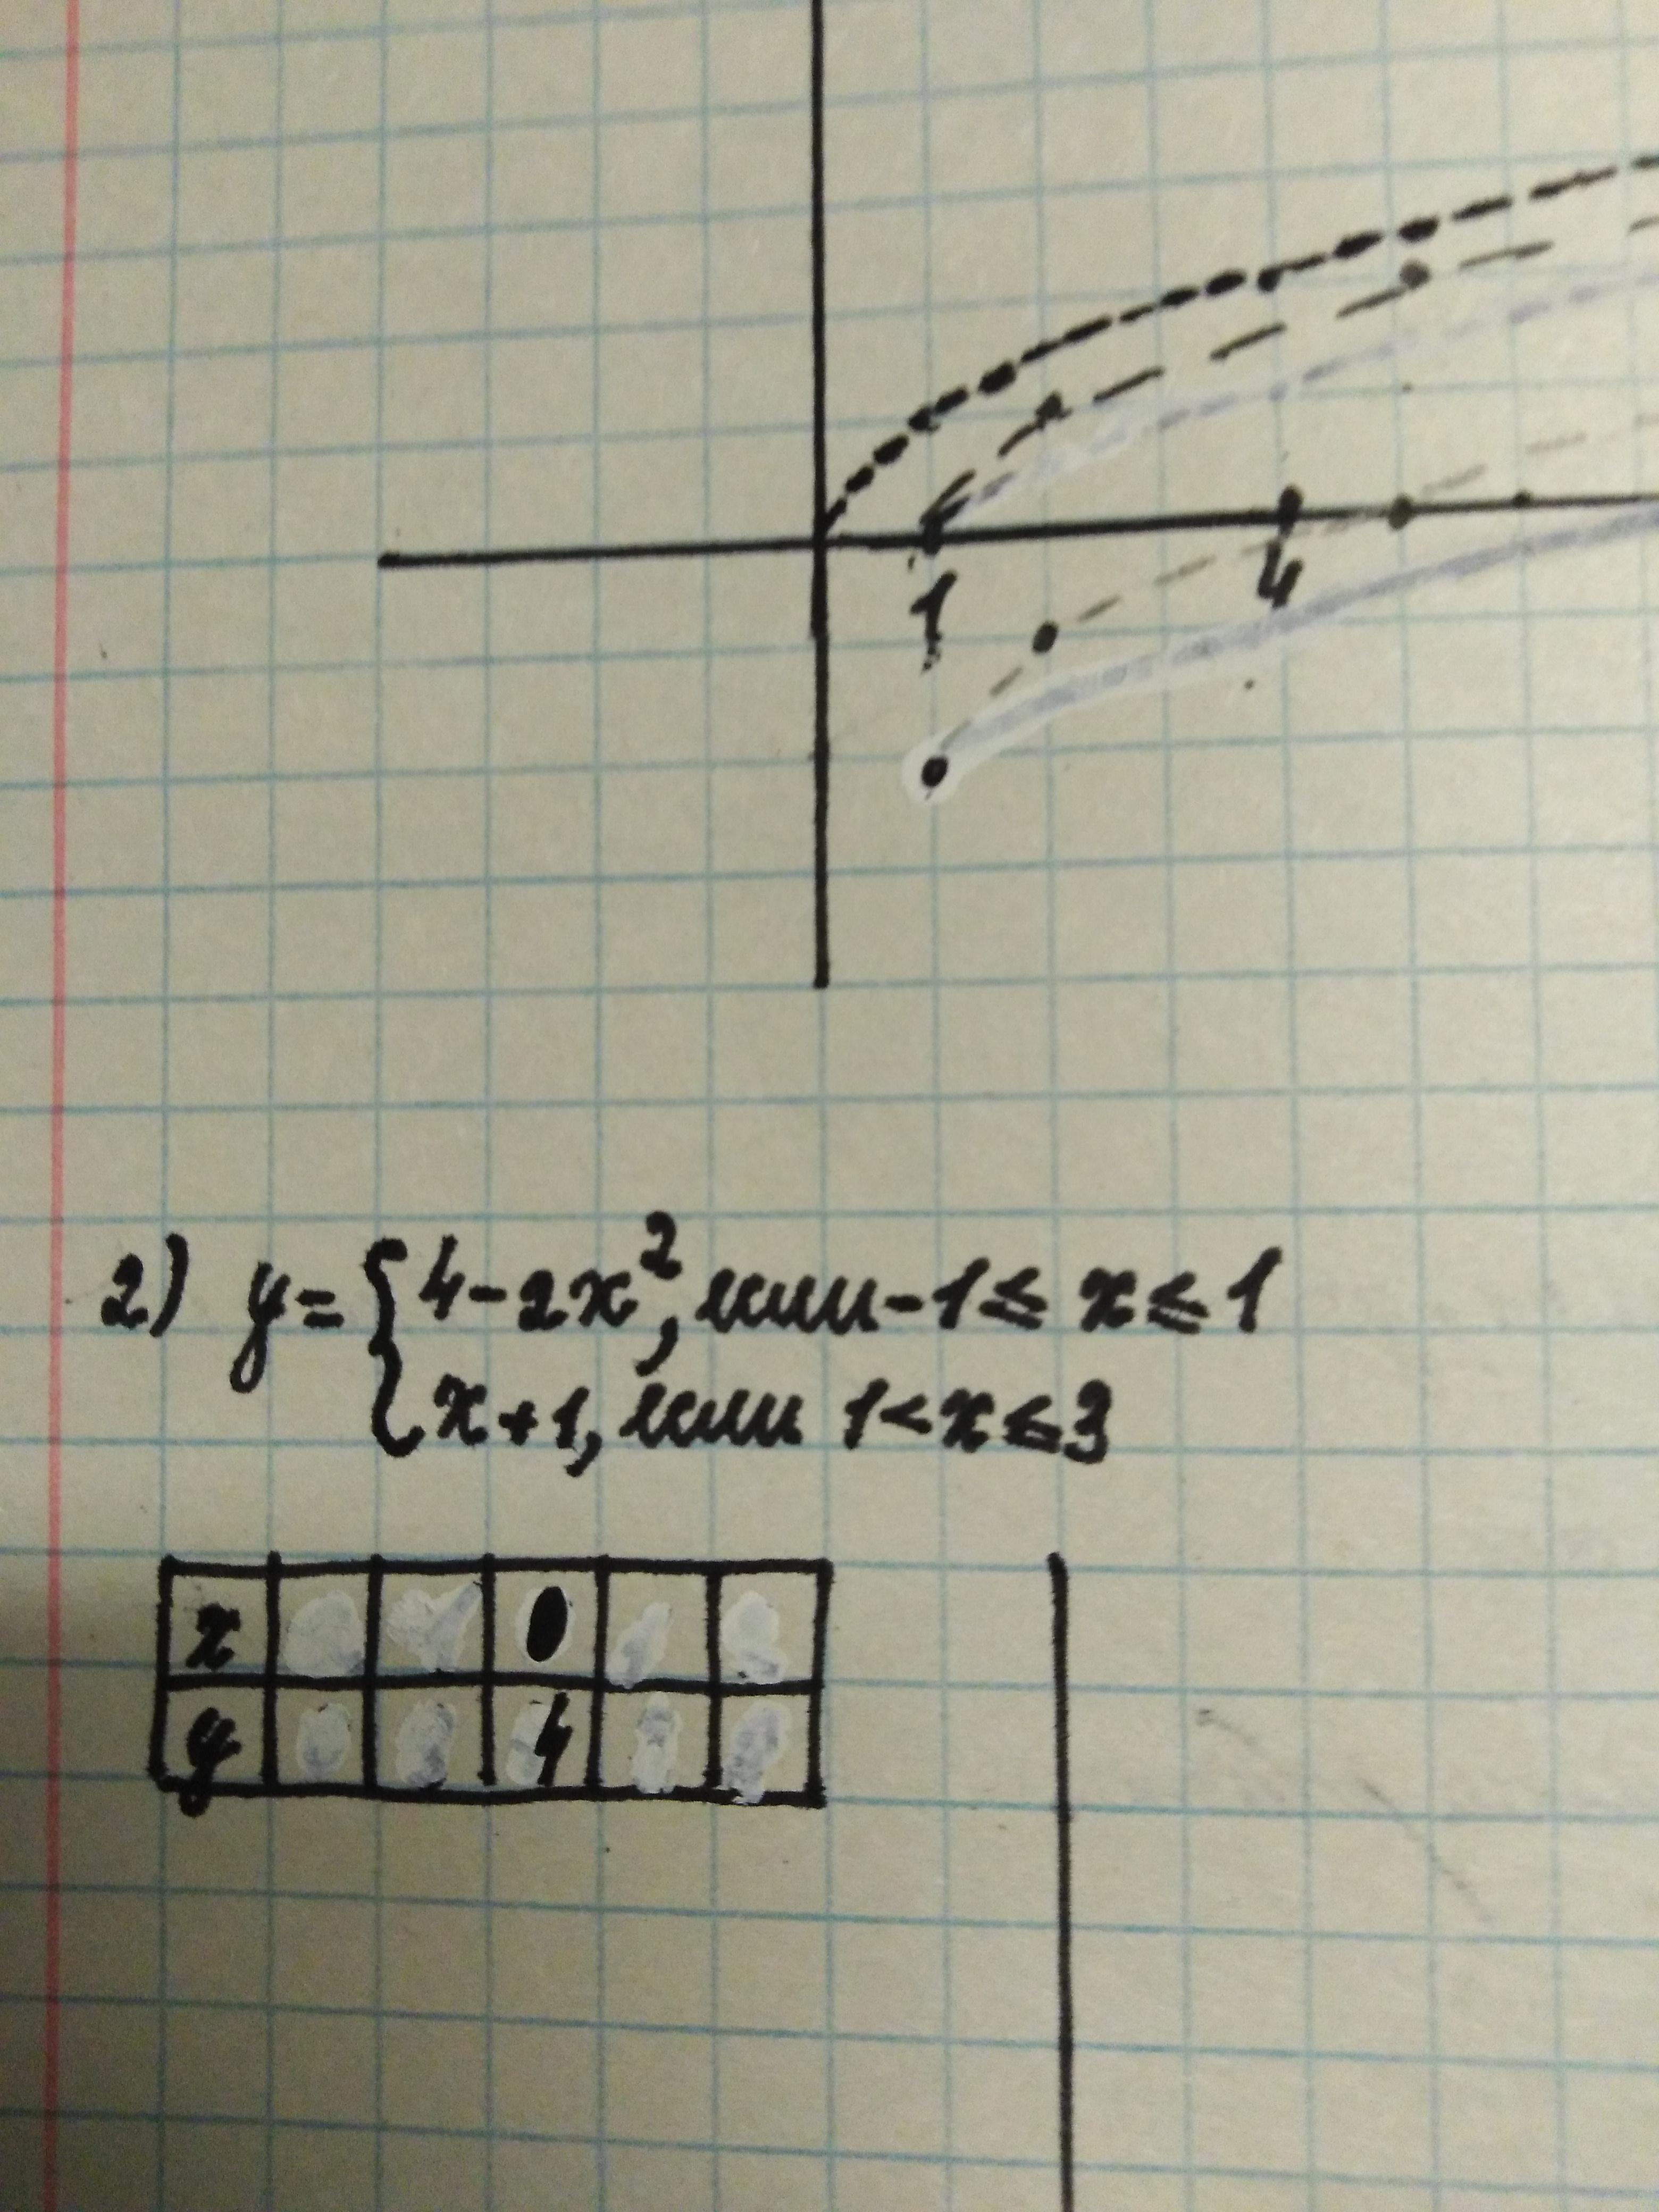 1 4
2) y = { 4 - 2x², если -1 ≤ x ≤ 1
x + 1, если 1 < x ≤ 3
x 0
y 4